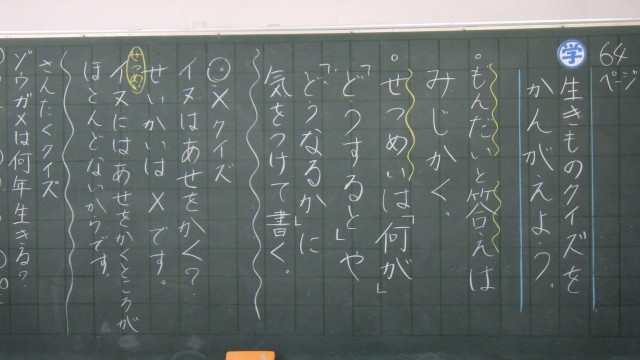 64ページ
学
生きものクイズを
かんがえよう。
。もんだいと答えは
みじかく。
。せつめいは「何が」
「どうすると」や
「どうなるか」に
気をつけて書く。
○×クイズ
イヌはあせをかく?
せいかいは×です。
せつめい
イヌにはあせをかくところが
ほとんどないからです。
さんたくクイズ
ゾウガメは何年生きる?